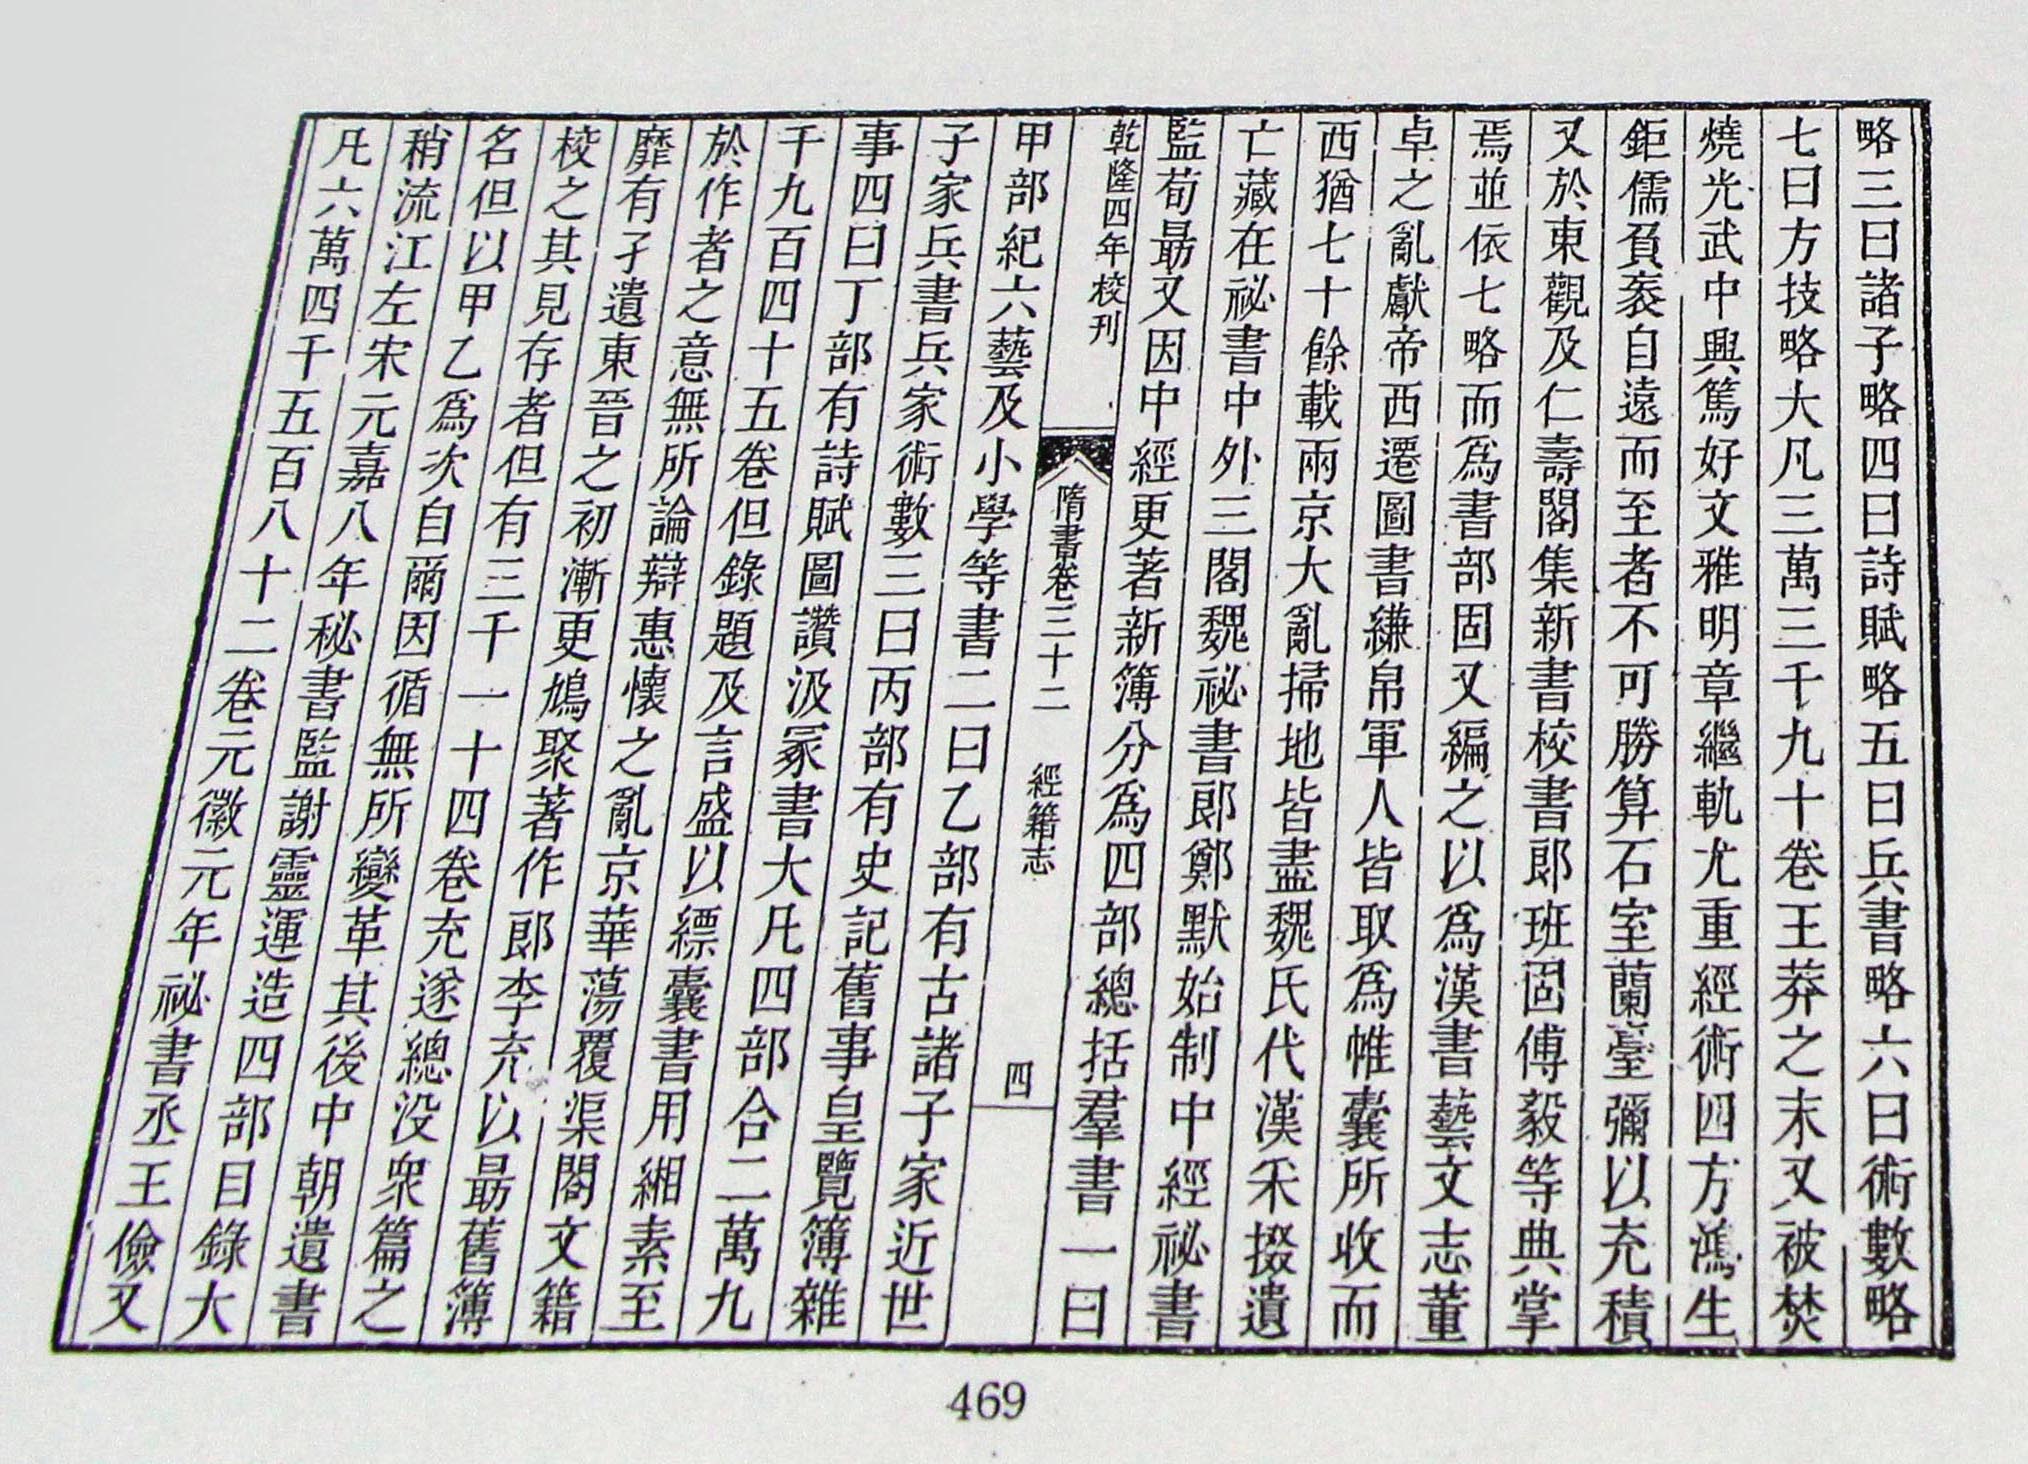 略三曰諸子略四曰詩賦略五曰兵書略六曰術數略
七曰方技略大凡三萬三千九十卷王莽之末又被焚
燒光武中興篤好文雅明章繼軌尤重經術四方鴻生
鉅儒負袠自遠而至者不可勝算石室蘭臺彌以充積
又於東觀及仁壽閣集新書校書郎班固傅毅等典掌
焉並依七略而爲書部固又編之以爲漢書藝文志董
卓之亂獻帝西遷圖書縑帛軍人皆取爲帷囊所收而
西猶七十餘載兩京大亂掃地皆盡魏氏代漢采掇遺
亡藏在祕書中外三閣魏祕書郎鄭默始制中經祕書
監荀勗又因中經更著新簿分爲四部總括羣書一曰
乾隆四年校刊
隋書卷三十二 經籍志
四
甲部紀六藝及小學等書二曰乙部有古諸子家近世
子家兵書兵家術數三曰丙部有史記舊事皇覽簿雜
事四曰丁部有詩賦圖讚汲冢書大凡四部合二萬九
千九百四十五卷但錄題及言盛以縹囊書用緗素至
於作者之意無所論辯惠懷之亂京華蕩覆渠閣文籍
靡有孑遺東晉之初漸更鳩聚著作郎李充以勗舊簿
校之其見存者但有三千一十四卷充遂總没衆篇之
名但以甲乙爲次自爾因循無所變革其後中朝遺書
稍流江左宋元嘉八年秘書監謝靈運造四部目錄大
凡六萬四千五百八十二卷元徽元年祕書丞王儉又
469